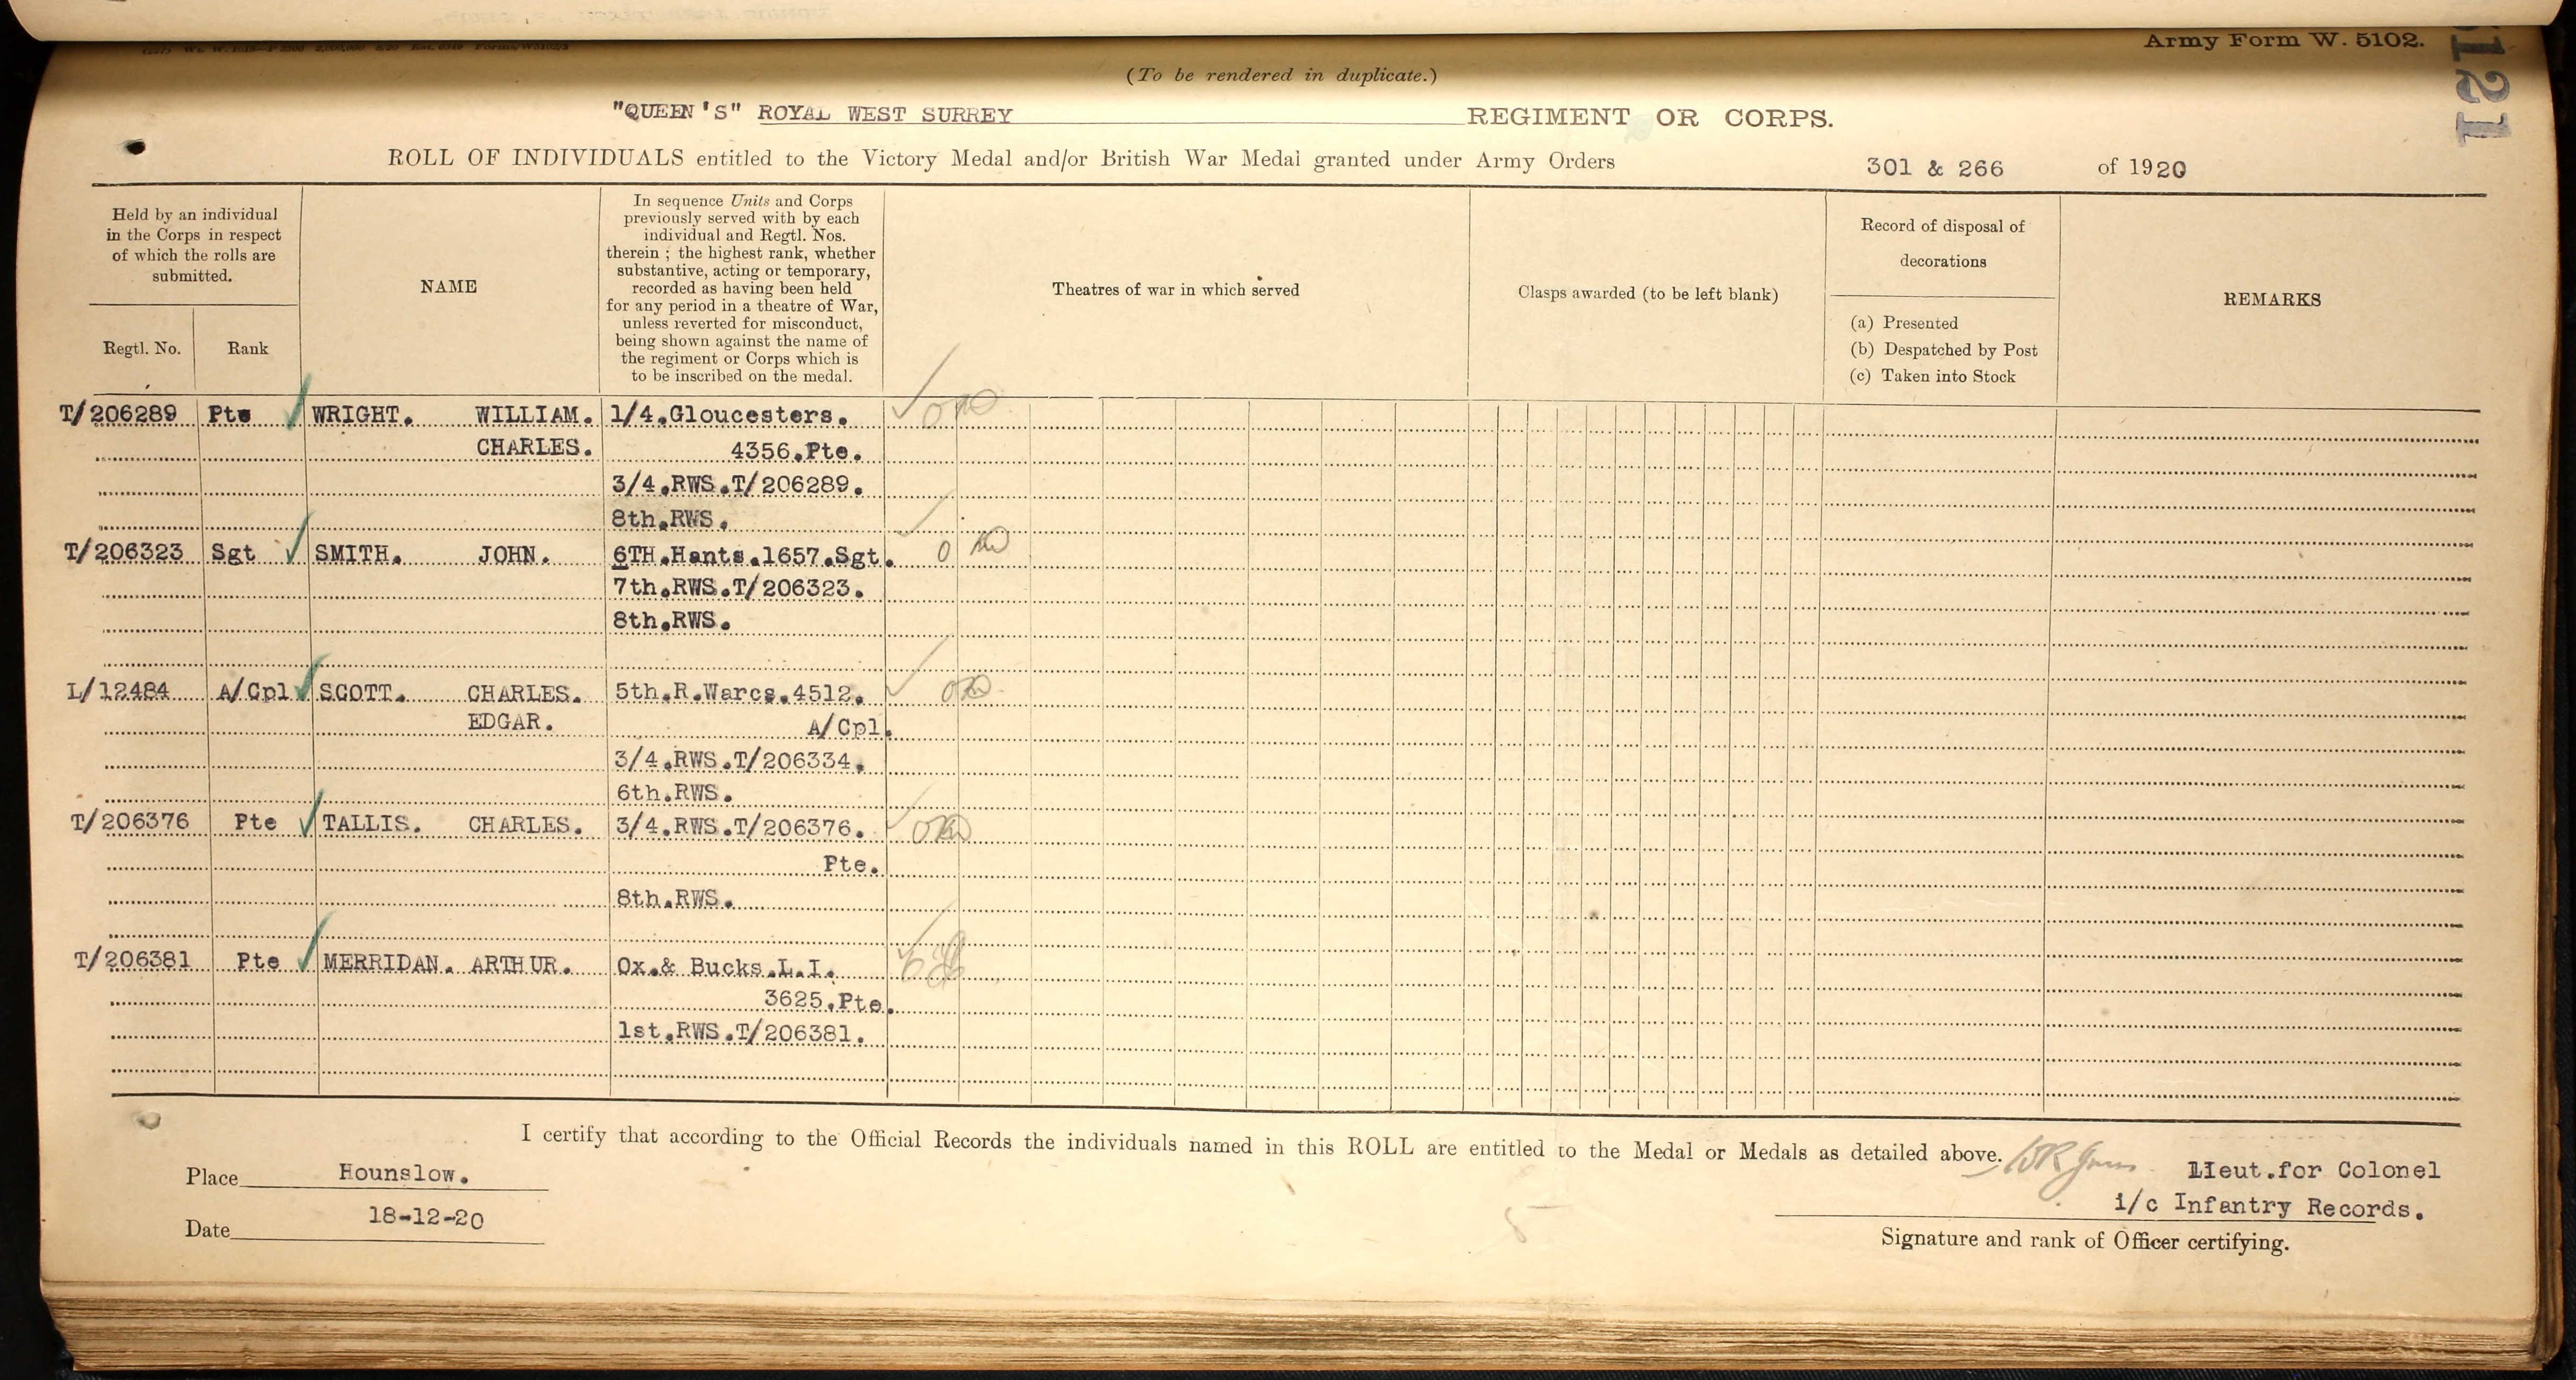 Army Form W. 5102.
5121
(To be rendered in duplicate.)
"QUEEN'S" ROYAL WEST SURREY REGIMENT OR CORPS.
ROLL OF INDIVIDUALS entitled to the Victory Medal and/or British War Medal granted under Army Orders 301 & 266 of 1920
Held by an individual
in the Corps in respect
of which the rolls are
submitted.
Regtl. No. Rank
NAME
In sequence Units and Corps
previously served with by each
individual and Regtl. Nos.
therein ; the highest rank, whether
substantive, acting or temporary,
recorded as having been held
for any period in a theatre of War,
unless reverted for misconduct,
being shown against the name of
the regiment or Corps which is
to be inscribed on the medal.
Theatres of war in which served
Clasps awarded (to be left blank)
Record of disposal of
decorations
(a) Presented
(b) Despatched by Post
(c) Taken into Stock
REMARKS
T/206289 Pte WRIGHT. WILLIAM. 1/4.Gloucesters.
CHARLES. 4356.Pte.
3/4.RWS.T/206289.
8th.RWS.
T/206323 Sgt SMITH. JOHN. 6TH.Hants.1657.Sgt.
7th.RWS.T/206323.
8th.RWS.
L/12484 A/Cpl SCOTT. CHARLES. 5th.R.Warcs.4512.
EDGAR. A/Cpl.
3/4.RWS.T/206334.
6th.RWS.
T/206376 Pte TALLIS. CHARLES. 3/4.RWS.T/206376.
Pte.
8th.RWS.
T/206381 Pte MERRIDAN. ARTHUR. Ox.& Bucks.L.I.
3625.Pte.
1st.RWS.T/206381.
I certify that according to the Official Records the individuals named in this ROLL are entitled to the Medal or Medals as detailed above.
Place Hounslow.
Date 18-12-20
5
Lieut.for Colonel
i/c Infantry Records.
Signature and rank of Officer certifying.